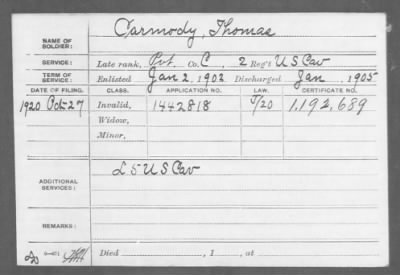 Carmody, Thomas
NAME OF SOLDIER:
SERVICE: Late rank, Pvt. Co. C, 2 Reg't U S Cav
TERM OF SERVICE: Enlisted Jan 2, 1902 Discharged Jan, 1905
DATE OF FILING. CLASS. APPLICATION NO. LAW. CERTIFICATE NO.
1920 Oct-27 Invalid, 1442818 1,192,689
Widow,
Minor,
ADDITIONAL SERVICES: L 5 U S Cav
REMARKS:
Died , 1 , at